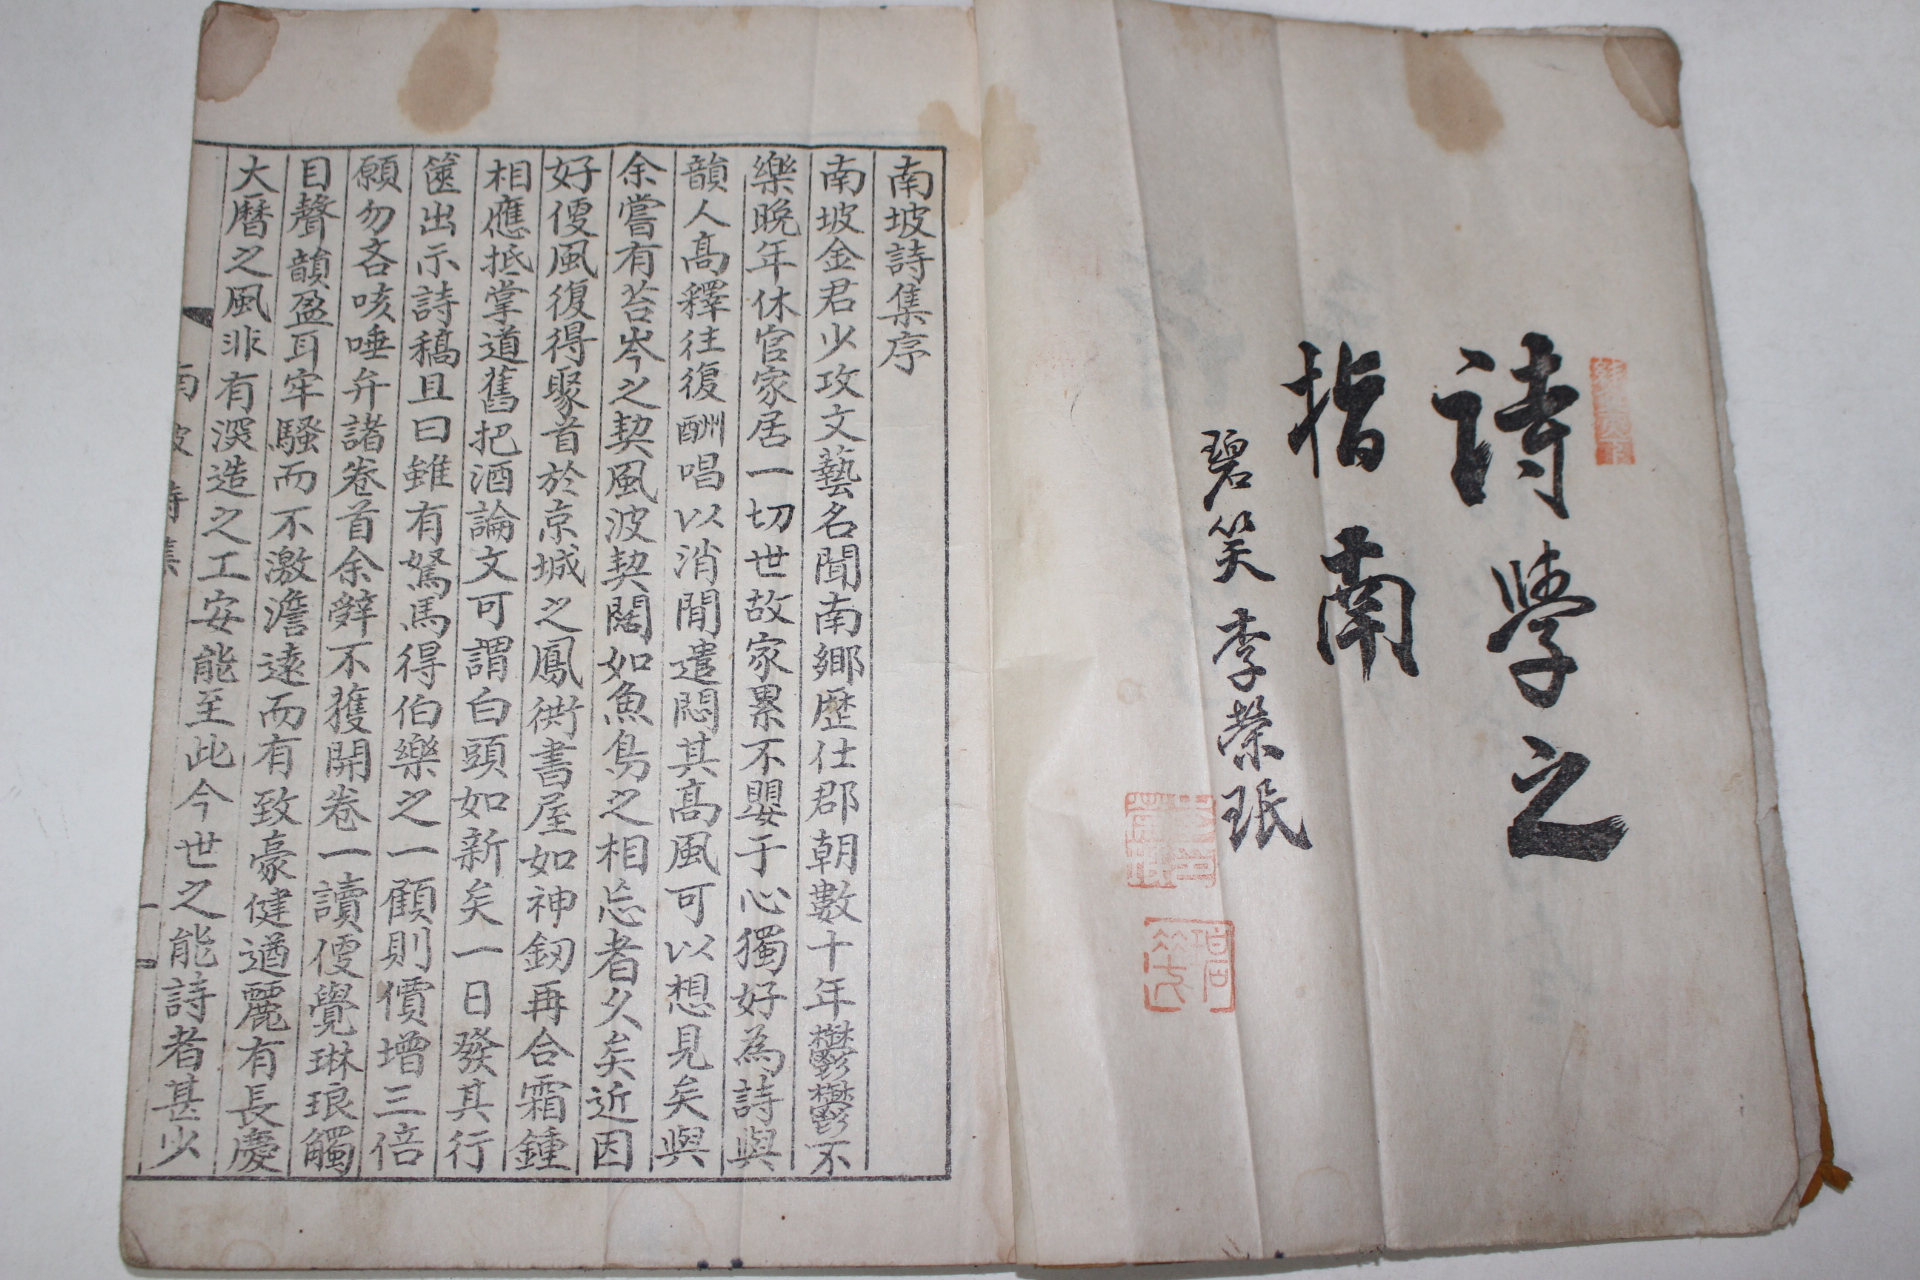 詩學之
指南
碧笑李榮珉
南坡詩集序
南坡金君少攻文藝名聞南鄉歷仕郡朝數十年鬱鬱不
樂晩年休官家居一切世故家累不嬰于心獨好為詩與
韻人高釋往復酬唱以消閒遣悶其高風可以想見矣與
余嘗有苔岑之契風波契闊如魚鳥之相忘者久矣近因
好便風復得聚首於京城之鳳衕書屋如神釰再合霜鍾
相應抵掌道舊把酒論文可謂白頭如新矣一日發其行
篋出示詩稿且曰雖有駑馬得伯樂之一顧則價增三倍
願勿吝咳唾弁諸卷首余辤不獲開卷一讀便覺琳琅觸
目聲韻盈耳牢騷而不激澹遠而有致豪健遒麗有長慶
大曆之風非有深造之工安能至此今世之能詩者甚少
南坡詩集
一